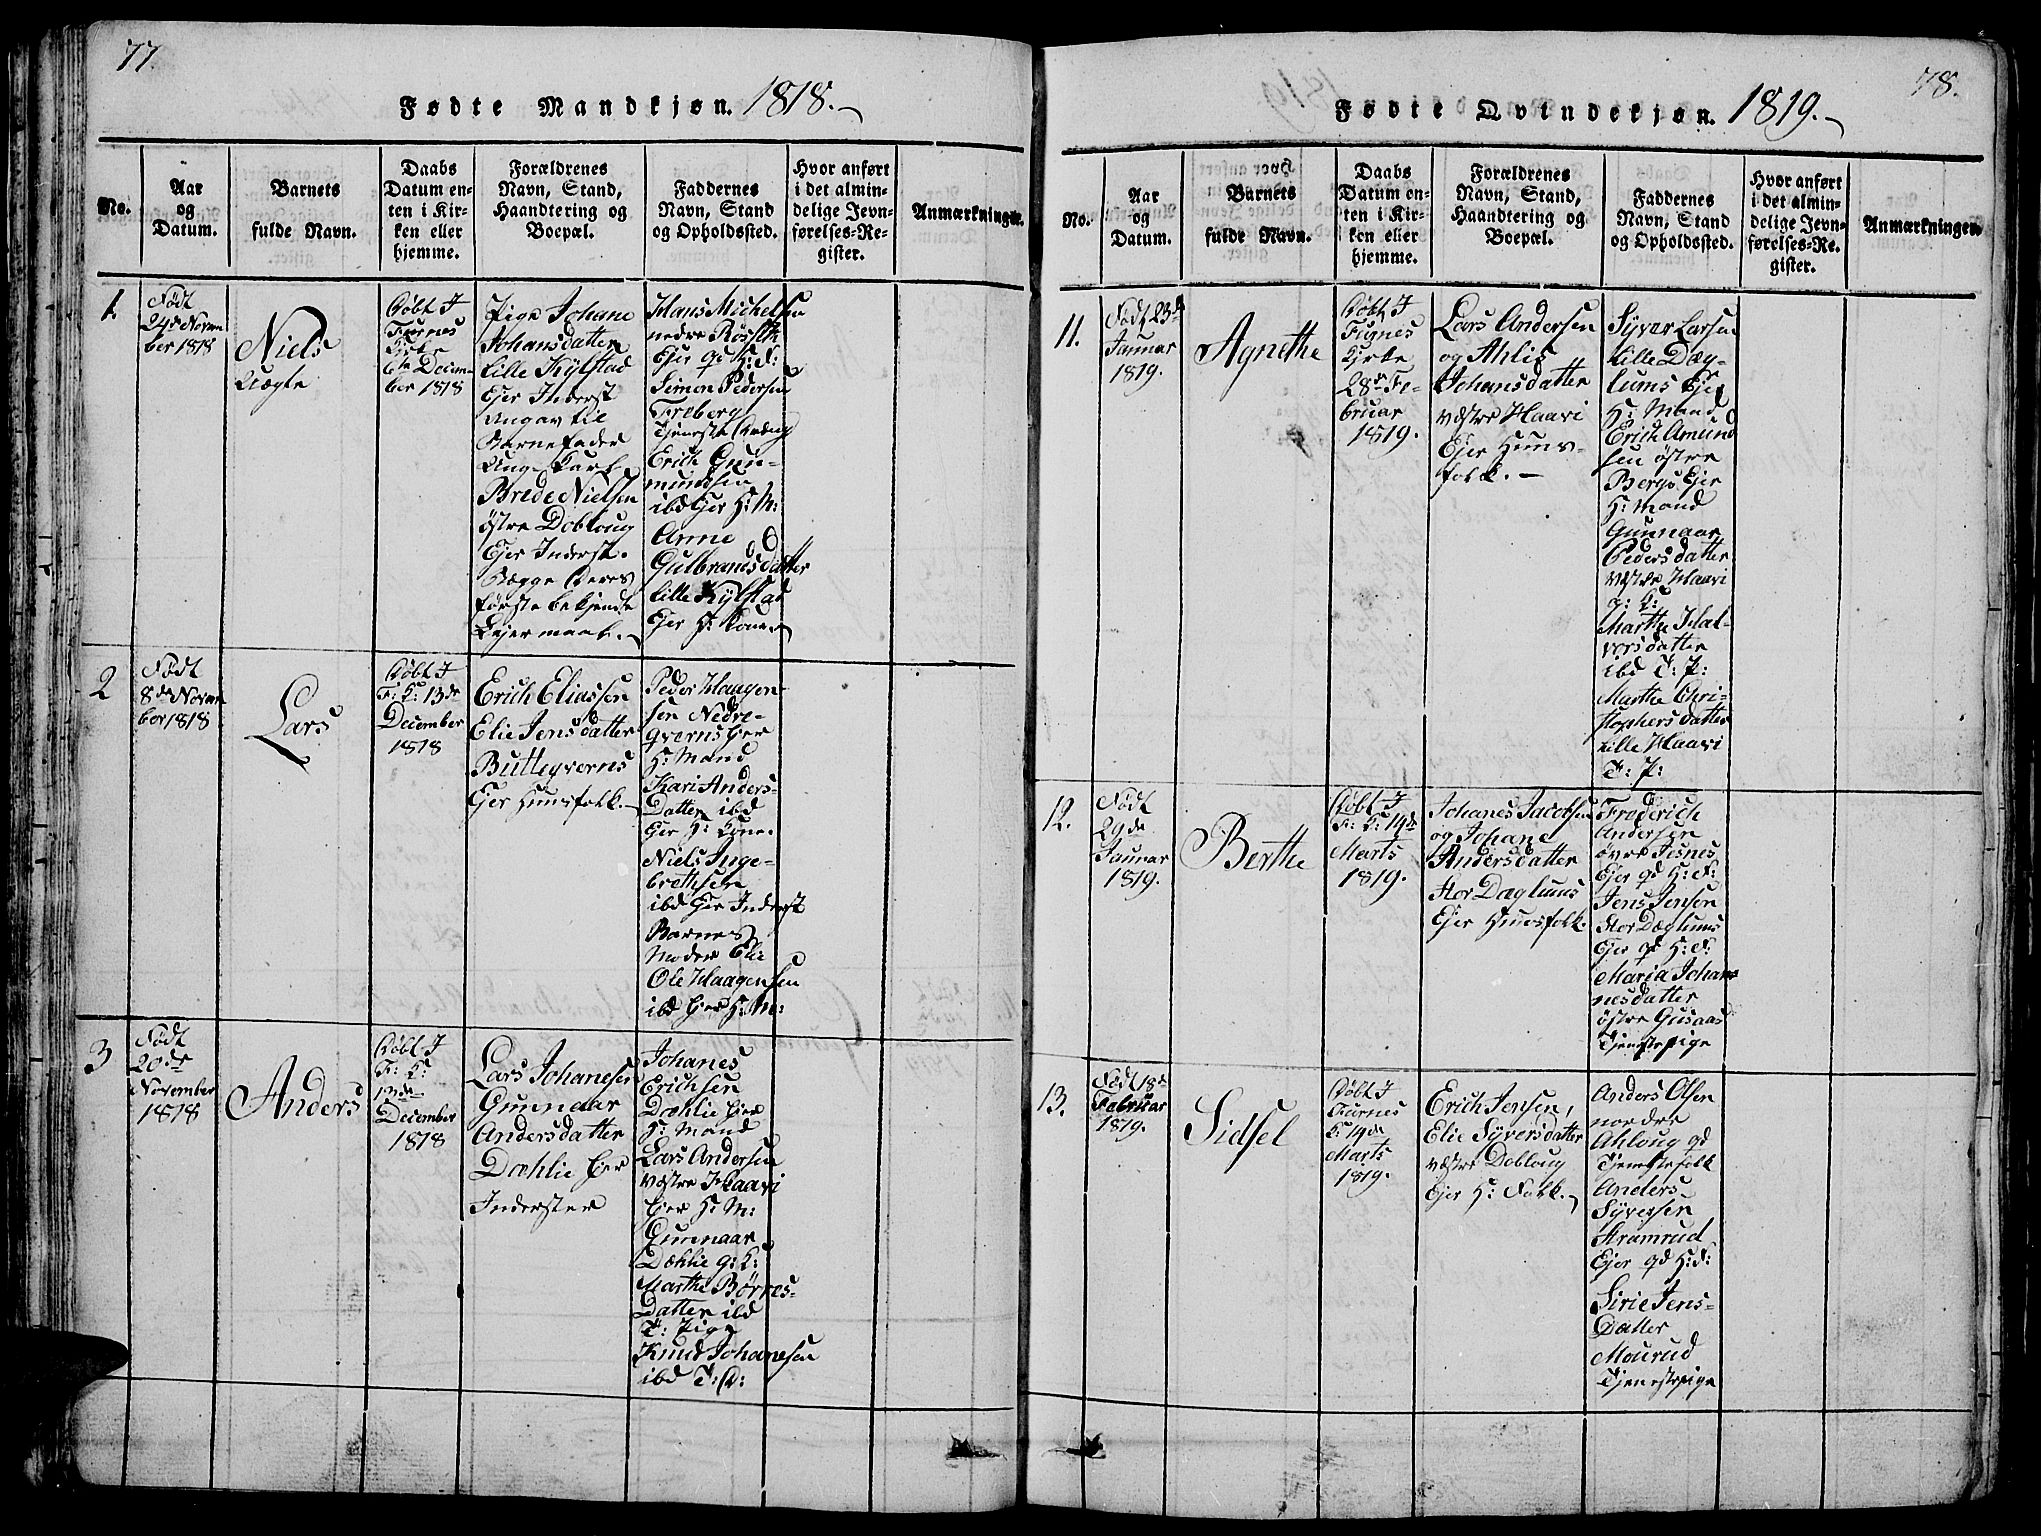 77.
Fødte Mandkjøn. 1818.
No.
Aar
og
Datum.
Barnets
fulde Navn.
Daabs
Datum en-
ten i Kir-
ken eller
hjemme.
Forældrenes
Navn, Stand,
Haandtering og
Boepæl.
Faddernes
Navn, Stand
og Opholdssted.
Hvor anført
i det almin-
delige Jevn-
førelses-Re-
gister.
Anmærkninger.
1.
Født
24de Novem
ber 1818
Niels
Uægte
Døbt I
Furnes
Kirke
6te Decem-
ber 1818
Pige Johane
Johansdatter
Lille Kylstad
Ejer Inderst
Angav til
Barnefader
Unge Karl
Brede Nielsen
östre Dobloug
Ejer Inderst.
Begge Deres
første bekjendte
Lejermaal.
Hans Michelsen
nedre
Ejer gd H: F:
Simon Pedersen
Freberg
Tjeneste
Erich Gun-
mundsen
ibd Ejer H: M:
Anne
Gulbrandsdatter
Lille Kylstad
Ejer H: Kone
2
Født
8de Novem
ber 1818
Lars
Døbt I
F: K: 13de
December
1818
Erich Eliassen
Elie Jensdatter
Buttegvernes
Ejer Huusfolk.
Peder Haagen
sen Nedre-
qverns Ejer
H: Mand
Kari Anders-
Datter ibd
Ejer H: Kone.
Niels Inge-
brethsen
ibd Ejer Inderst
Barnes
Moder Elie
Ole Haagensen
ibd Ejer H: M:
3
Født
20de
November
1818
Anders
Døbt I
F: K:
13de
December
1818
Lars Johanesen
Gunnaar
Andersdatter
Dæhlie Ejer
Inderster
Johanes
Erichsen
Dæhlie Ejer
H: Mand
Lars Andersen
Vestre Haavi
Ejer H: M:
Gunnaar
Dæhlie G: K:
Marthe Børres-
Datter ibd
T: Pige
Knud Johanesen
ibd T: D:
78.
Fødte Qvindekjøn. 1819.
No.
Aar
og
Datum.
Barnets
fulde Navn.
Daabs
Datum en-
ten i Kir-
ken eller
hjemme.
Forældrenes
Navn, Stand,
Haandtering og
Boepæl.
Faddernes
Navn, Stand
og Opholdssted.
Hvor anført
i det almin-
delige Jevn-
førelses-Re-
gister.
Anmærkninger.
11.
Født 23de
Januar
1819.
Agnethe
Døbt I
Kirke
28de Fe-
bruar
1819.
Lars Andersen
og Ahlis
Johansdatter
Vestre Haavi
Ejer Huus-
folk.
Syver Larsen
Lille Dæg-
lums Ejer
H: Mand
Erich Amund
sen østre
Bergs Ejer
H: Mand
Gunnaar
Pedersdatter
Vestre Haavi
g: K:
Marthe Hal-
vorsdatter
ibd T: P:
Marthe Chri-
stophersdatter
Lille Haavi
T: P:
12.
Født
29de
Januar
1819.
Berthe
Døbt I
F: K: 14de
Marts
1819.
Johanes Jacobsen
og Johane
Andersdatter
Stor Dæglums
Ejer Huusfolk.
Frederich
Andersen
øvre Jesnes
Ejer gd H: F:
Jens Jensen
Stor Dæglums
Ejer gd H: F:
Maria Johan
nesdatter
østre Gusaas
Tjenstepige
13.
Født 18de
Februar
1819.
Sidsel
Døbt I
Furnes
K: 14de
Marts
1819.
Erich Jensen,
Elie Syversdatter
Vestre Dobloug
Ejer H: Folk.
Anders Olsen
nordre
Ahloug gd
Tjenestefolk
Anders
Syversen
Stramrud
Ejer gd H: F:
Sirie Jens-
Datter
Mourud
Tjenestepige